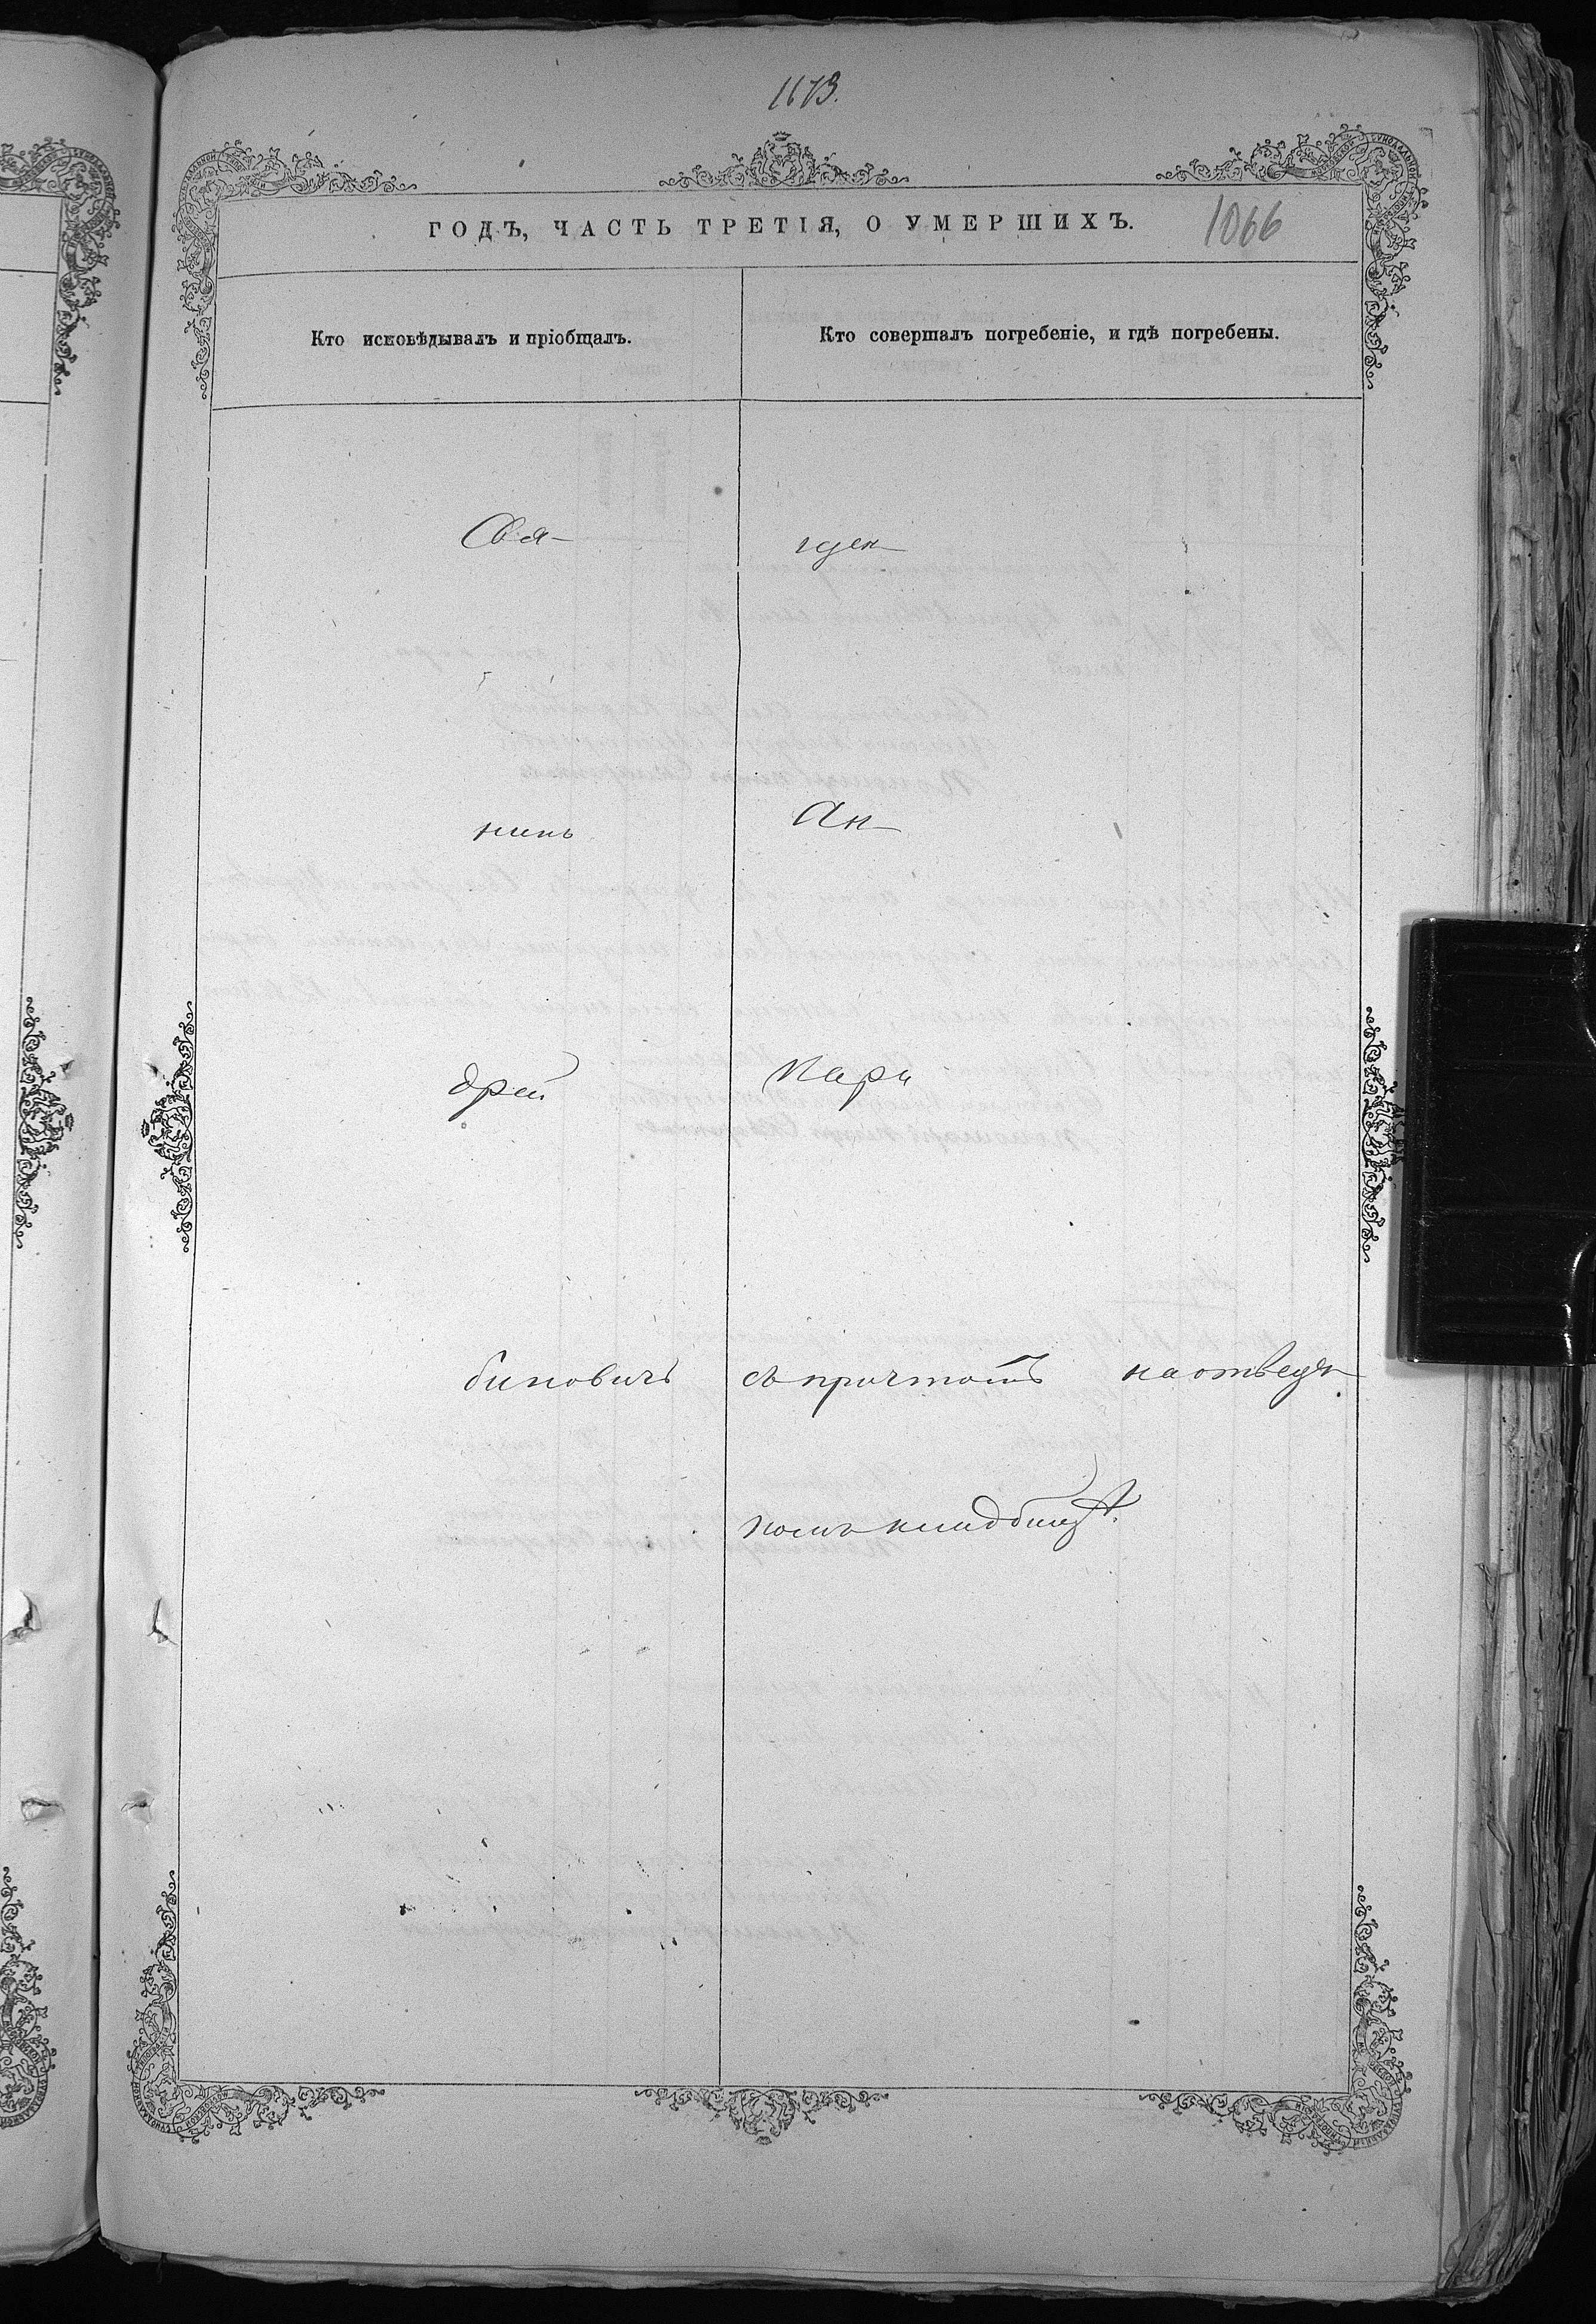 1173.
ГОДЪ, ЧАСТЬ ТРЕТІЯ, О УМЕРШИХЪ. 1066
Кто исповѣдывалъ и пріобщалъ. Кто совершалъ погребеніе, и гдѣ погребены.
Свя- щен-
никъ Ан-
дрей Кара
биновичъ съ причтомъ на отведен-
номъ кладбищѣ.